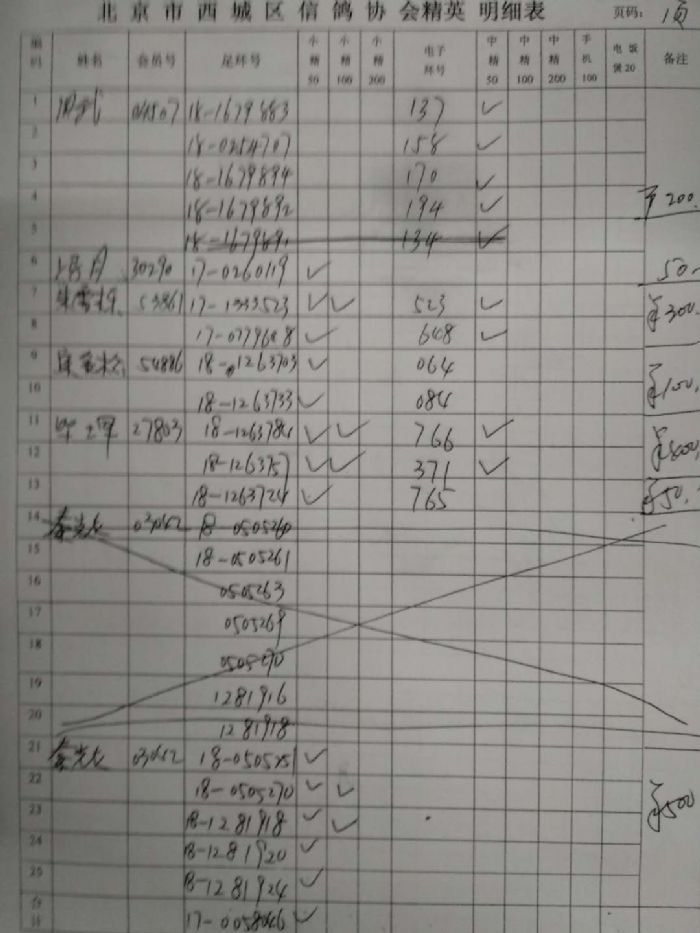 北京市西城区信鸽协会精英明细表 页码: 1页
编码 姓名 会员号 足环号 小精50 小精100 小精200 电子环号 中精50 中精100 中精200 手机100 电饭煲20 备注
1 04507 18-1679883 137 ✓
2 18-0254707 158 ✓
3 18-1679894 170 ✓
4 18-1679892 194 ✓ ¥200.
5 134 ✓
6 30290 17-0260119 ✓ 50.
7 53861 17-1333523 ✓ ✓ 523 ✓ ¥300.
8 17-0779608 ✓ 648 ✓
9 54886 18-1263703 ✓ 064
10 18-1263733 ✓ 084 ¥100.
11 27803 18-1263784 ✓ ✓ 766 ✓
12 18-126375 ✓ ✓ 371 ✓
13 18-1263724 ✓ 765 ¥50.
14 秦光友 03062 18-0505260
15 18-0505261
16 0505263
17 0505269
18 0505270
19 1281916
20 1281918
21 秦光友 03062 18-0505251 ✓
22 18-0505270 ✓ ✓ ¥500
23 18-1281918 ✓ ✓
24 18-1281920 ✓
25 18-1281924 ✓
17-0058046 ✓